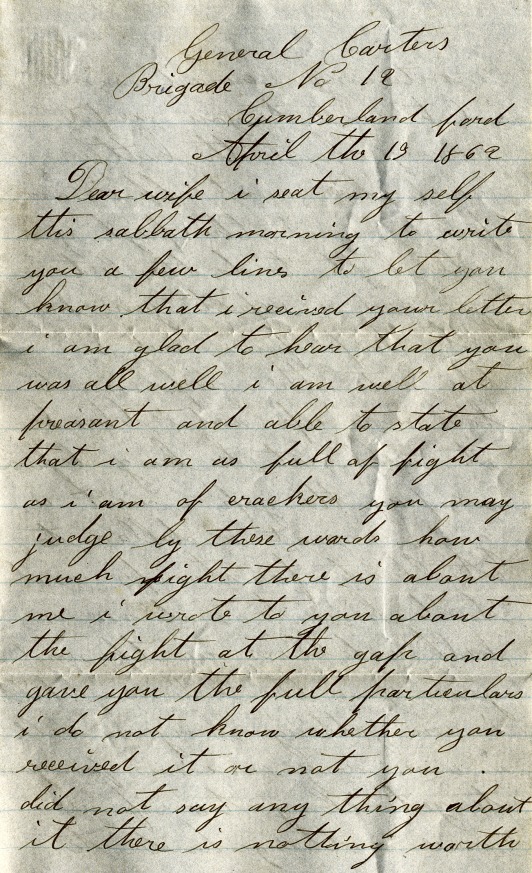 General Carters
Brigade No 12
Cumberland ford
April the 13 1862
Dear wife i seat my self
this sabbath morning to write
you a few lines to let you
know that i recived your letter
i am glad to hear that you
was all well i am well at
preasant and able to state
that i am as full of fight
as i am of crackers you may
judge by these words how
much fight there is about
me i wrote to you about
the fight at the gap and
gave you the full particulars
i do not know whether you
received it or not you .
did not say any thing about
it there is nothing worth